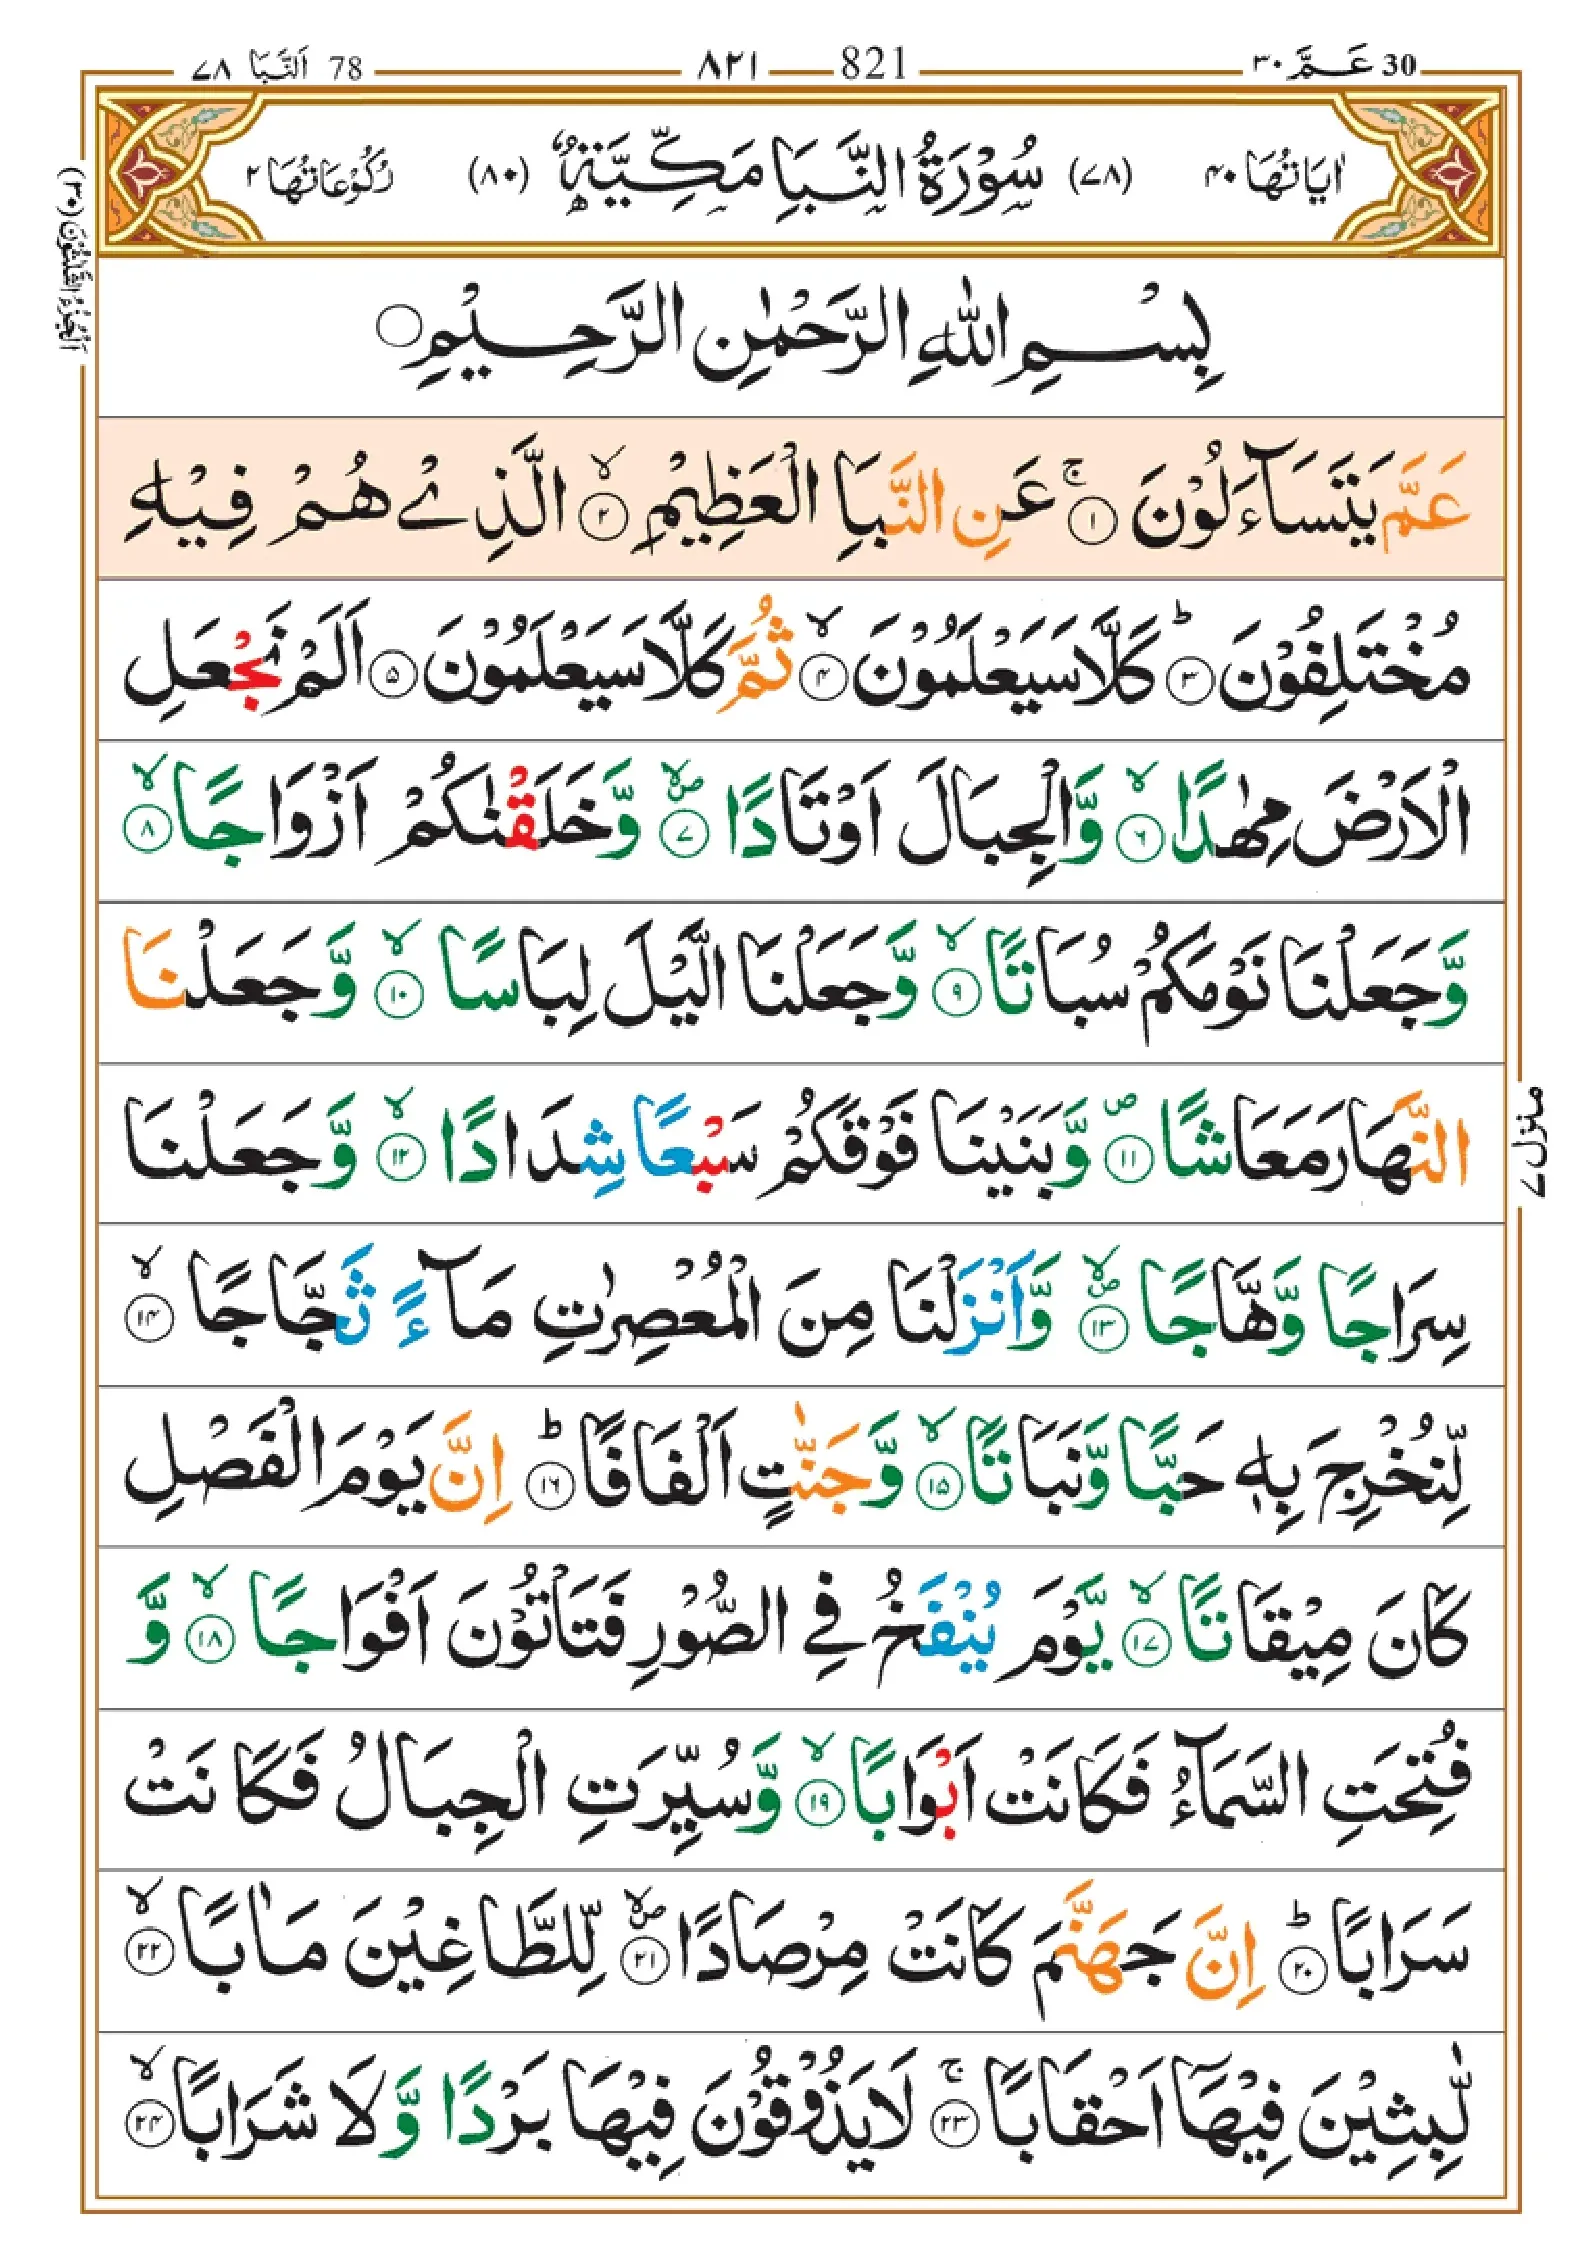 30 عَمَّ ٣٠
821 ٨٢١
78 اَلنَّبَا ٧٨
اٰيَاتُهَا ٤٠ (٧٨) سُوْرَةُ النَّبَاِ مَكِّيَّةٌ (٨٠) رُكُوْعَاتُهَا ٢
اَلْجُزْءُ الثَّلٰثُوْنَ (٣٠)
بِسْمِ اللّٰهِ الرَّحْمٰنِ الرَّحِيْمِ ○
عَمَّ يَتَسَآءَلُوْنَ ۚ‏ ﴿١﴾ عَنِ النَّبَاِ الْعَظِيْمِ ۙ ﴿٢﴾ الَّذِىْ هُمْ فِيْهِ
مُخْتَلِفُوْنَ ؕ ﴿٣﴾ كَلَّا سَيَعْلَمُوْنَ ۙ ﴿٤﴾ ثُمَّ كَلَّا سَيَعْلَمُوْنَ ﴿٥﴾ اَلَمْ نَجْعَلِ
الْاَرْضَ مِهٰدًا ۙ ﴿٦﴾ وَّالْجِبَالَ اَوْتَادًا ۙ ص ﴿٧﴾ وَّخَلَقْنٰكُمْ اَزْوَاجًا ۙ ﴿٨﴾
وَّجَعَلْنَا نَوْمَكُمْ سُبَاتًا ۙ ﴿٩﴾ وَّجَعَلْنَا الَّيْلَ لِبَاسًا ۙ ﴿١٠﴾ وَّجَعَلْنَا
النَّهَارَ مَعَاشًا ص ﴿١١﴾ وَّبَنَيْنَا فَوْقَكُمْ سَبْعًا شِدَادًا ۙ ﴿١٢﴾ وَّجَعَلْنَا
سِرَاجًا وَّهَّاجًا ۙ ص ﴿١٣﴾ وَّاَنْزَلْنَا مِنَ الْمُعْصِرٰتِ مَآءً ثَجَّاجًا ۙ ﴿١٤﴾
لِّنُخْرِجَ بِهٖ حَبًّا وَّنَبَاتًا ۙ ﴿١٥﴾ وَّجَنّٰتٍ اَلْفَافًا ؕ ﴿١٦﴾ اِنَّ يَوْمَ الْفَصْلِ
كَانَ مِيْقَاتًا ۙ ﴿١٧﴾ يَّوْمَ يُنْفَخُ فِى الصُّوْرِ فَتَاْتُوْنَ اَفْوَاجًا ۙ ﴿١٨﴾ وَّ
فُتِحَتِ السَّمَآءُ فَكَانَتْ اَبْوَابًا ۙ ﴿١٩﴾ وَّسُيِّرَتِ الْجِبَالُ فَكَانَتْ
سَرَابًا ؕ ﴿٢٠﴾ اِنَّ جَهَنَّمَ كَانَتْ مِرْصَادًا ۙ ص ﴿٢١﴾ لِّلطَّاغِيْنَ مَاٰبًا ۙ ﴿٢٢﴾
لّٰبِثِيْنَ فِيْهَآ اَحْقَابًا ۚ ﴿٢٣﴾ لَا يَذُوْقُوْنَ فِيْهَا بَرْدًا وَّلَا شَرَابًا ۙ ﴿٢٤﴾
منزل ٧